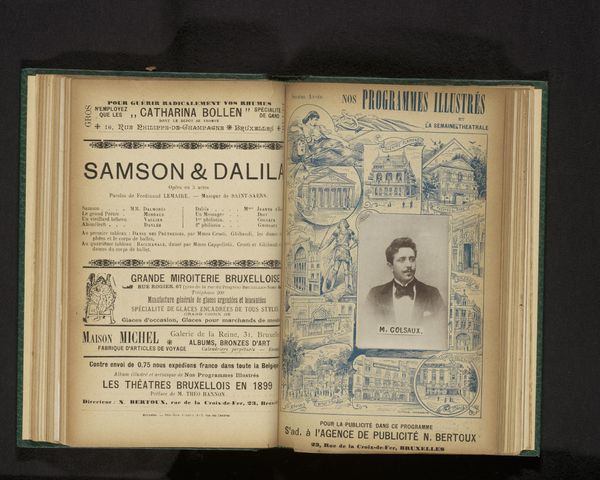 POUR GUÉRIR RADICALEMENT VOS RHUMES
GROS
N'EMPLOYEZ QUE LES
„ CATHARINA BOLLEN "
SPÉCIALITÉ DE GAND
DONT LE DÉPÔT SE TROUVE
16, RUE PHILIPPE-DE-CHAMPAGNE BRUXELLES
SAMSON & DALILA
Opéra en 3 actes
Paroles de Ferdinand LEMAIRE. — Musique de SAINT-SAËNS.
Samson . . . MM. DALMORÈS
Le grand Prêtre
Un vieillard hébreu VALLIER
Abimélech . . . DANLÉE
Dalila . . . Mme
Un Messager
1er philistin.
2e philistin.
Au premier tableau : DANSE DES PRÊTRESSES, par Mmes
phées et le corps de ballet.
Au quatrième tableau : BACCHANALE, danse par Mmes
dames du corps de ballet.
GRANDE MIROITERIE BRUXELLOISE
RUE ROGIER, 67
Téléphone
Manufacture générale de glaces argentées et biseautées
SPÉCIALITÉ DE GLACES ENCADRÉES DE TOUS STYLES
Glaces d'occasion, Glaces pour marchands de
MAISON MICHEL
Galerie de la Reine, 31,
FABRIQUE D'ARTICLES DE VOYAGE
ALBUMS, BRONZES D'ART
Calendriers perpétuels
Contre envoi de 0.75 nous expédions franco dans toute la Belgique
Album illustré et artistique de Nos Programmes Illustrés
LES THÉATRES BRUXELLOIS EN 1899
Préface de M. THÉO HANNON
Directeur : N. BERTOUX, rue de la Croix-de-Fer, 23,
NOS PROGRAMMES ILLUSTRÉS
ET
LA SEMAINE THEATRALE
M. COLSAUX.
POUR LA PUBLICITÉ DANS CE PROGRAMME
S'ad. à l'AGENCE DE PUBLICITÉ N. BERTOUX
23, Rue de la Croix-de-Fer, BRUXELLES